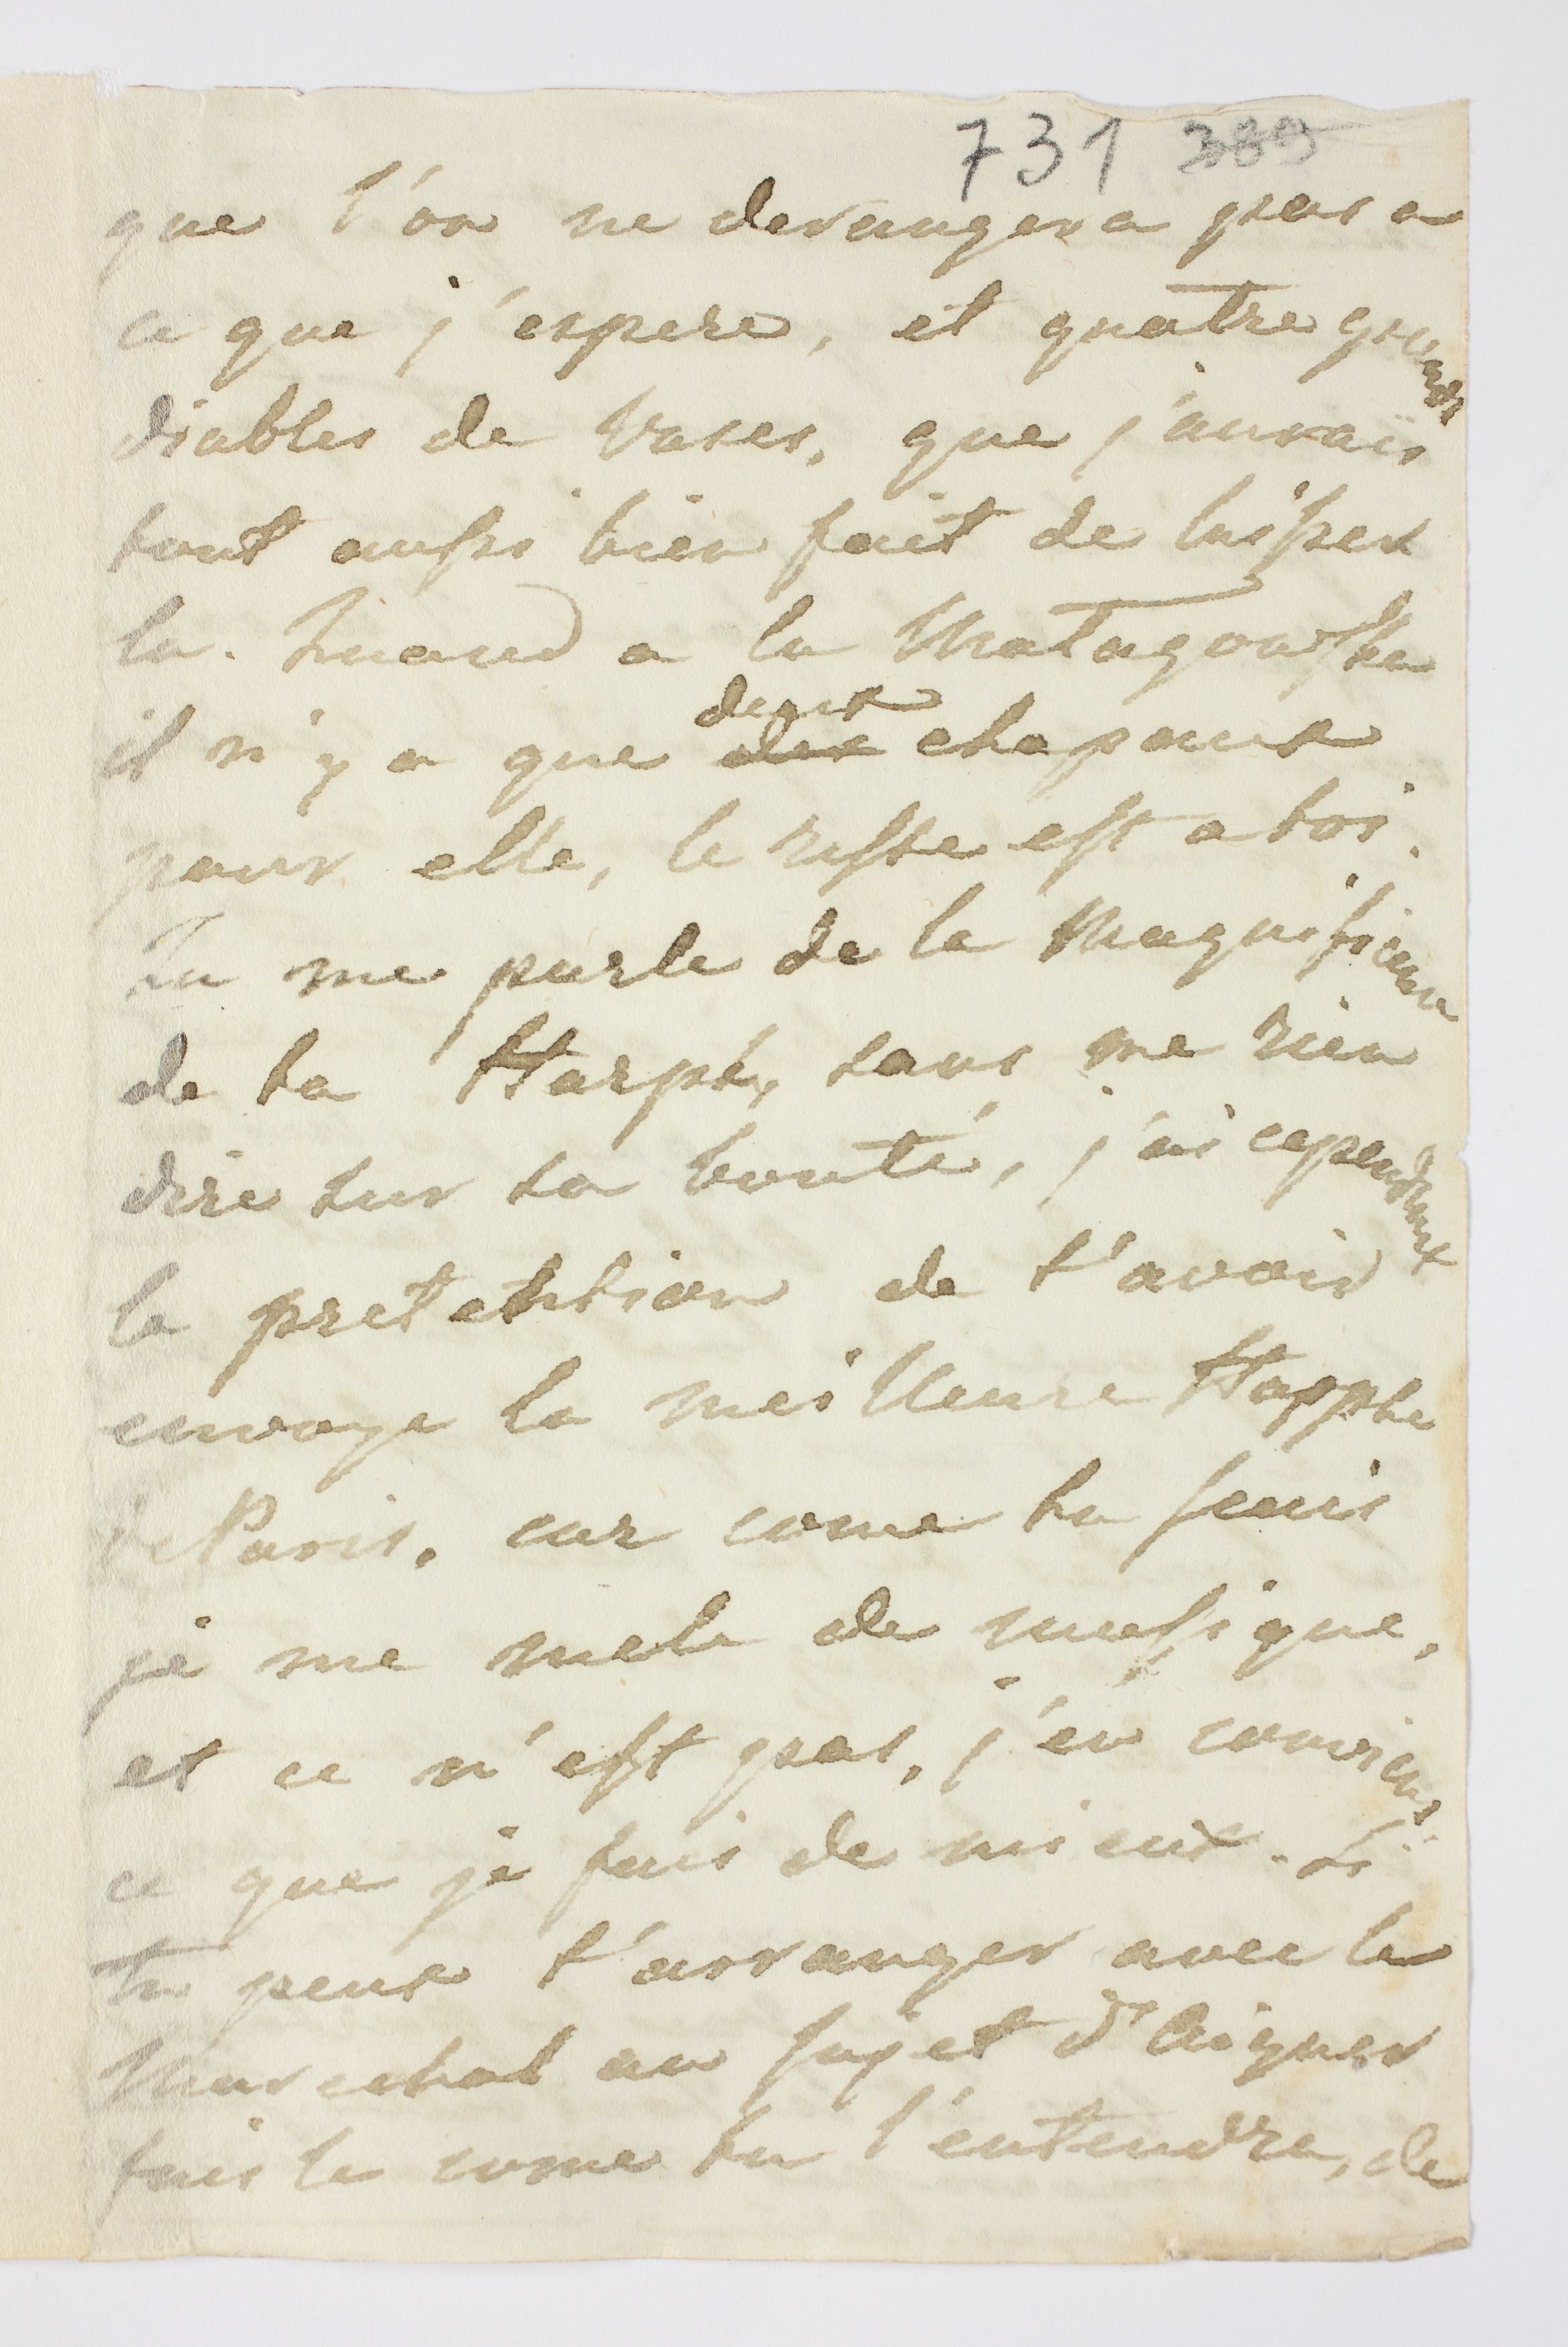 731 389
que l'on ne derangera pas a
ce que j'espere, et quatre grands
diables de Vases, que j'aurais
tout aussi bien fait de laisser
la. Quand a la Matagowska
il n'y a que deux des chapaux
pour elle, le reste est a toi.
Tu me parle de la Magnificence
de ta Harphe, sans me rien
dire sur sa bonté, j'ai cependant
la pretention de t'avoir
envoye la meilleure Harphe
de Paris, car come tu scais
je me mele de musique,
et ce n'est pas, j'en conviens
ce que je fais de mieux. Si
tu peux t'arranger avec le
Marechal au sujet d'Aigner
fais le come tu l'entendra, de